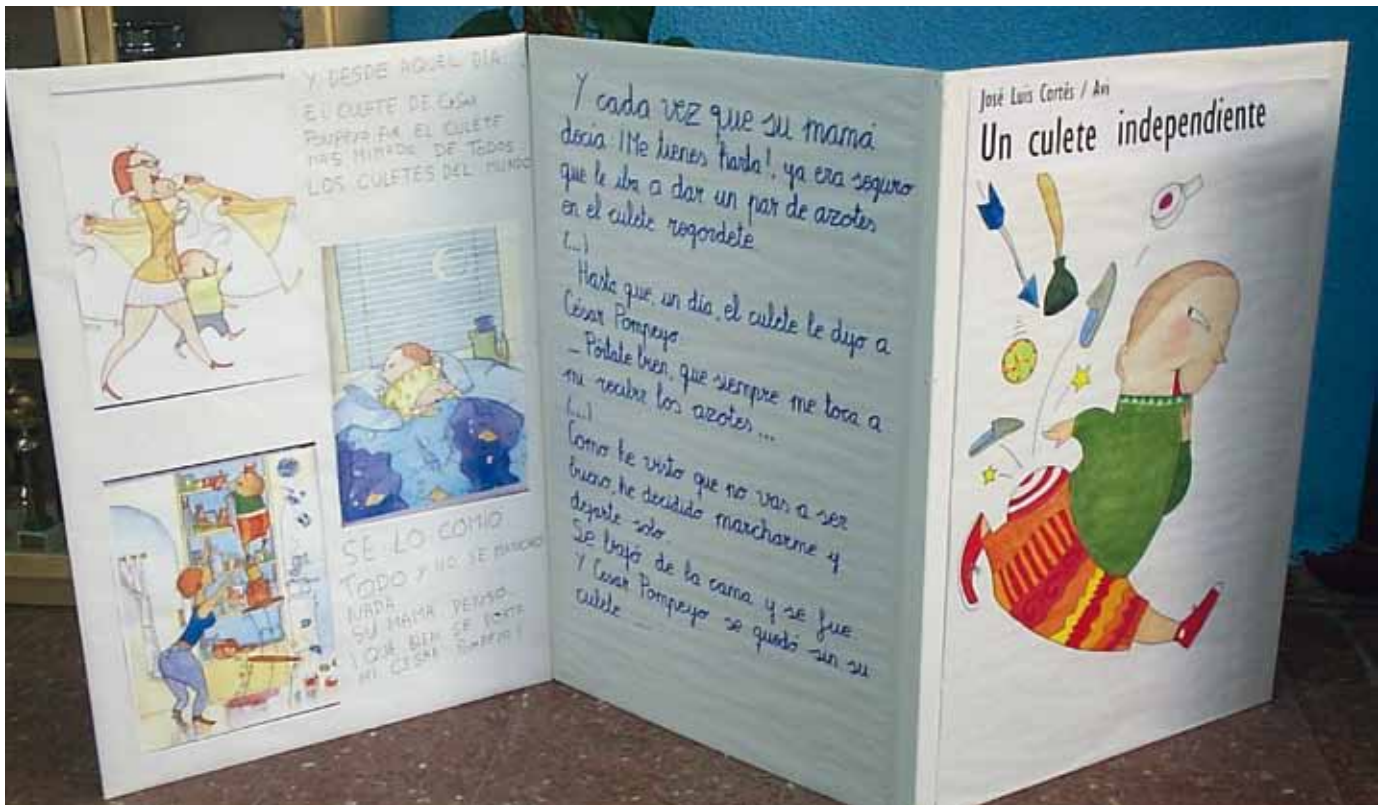 Y DESDE AQUEL DIA...
EL CULETE DE CESAR
POMPEYO FUE EL CULETE
MAS MIMADO DE TODOS
LOS CULETES DEL MUNDO
SE LO COMIO
TODO Y NO SE MANCHO
NADA
SU MAMA PENSO
¡QUE BIEN SE PORTA
MI CESAR POMPEYO!
Y cada vez que su mamá
decía ¡Me tienes harta!, ya era seguro
que le iba a dar un par de azotes
en el culete regordete
(...)
Hasta que, un día, el culete le dijo a
César Pompeyo
_ Pórtate bien, que siempre me toca a
mi recibir los azotes ...
(...)
Como he visto que no vas a ser
bueno, he decidido marcharme y
dejarte solo
Se bajó de la cama y se fue.
Y Cesar Pompeyo se quedó sin su
culete ...
José Luis Cortés / Avi
Un culete independiente